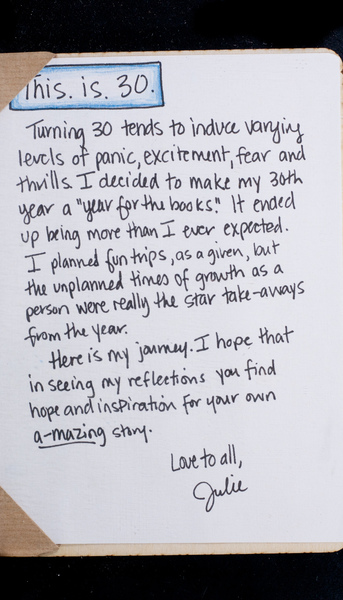 This. is. 30.
Turning 30 tends to induce varying
levels of panic, excitement, fear and
thrills. I decided to make my 30th
year a "year for the books." It ended
up being more than I ever expected.
I planned fun trips, as a given, but
the unplanned times of growth as a
person were really the star take-aways
from the year.
Here is my journey. I hope that
in seeing my reflections you find
hope and inspiration for your own
a-mazing story.
Love to all,
Julie